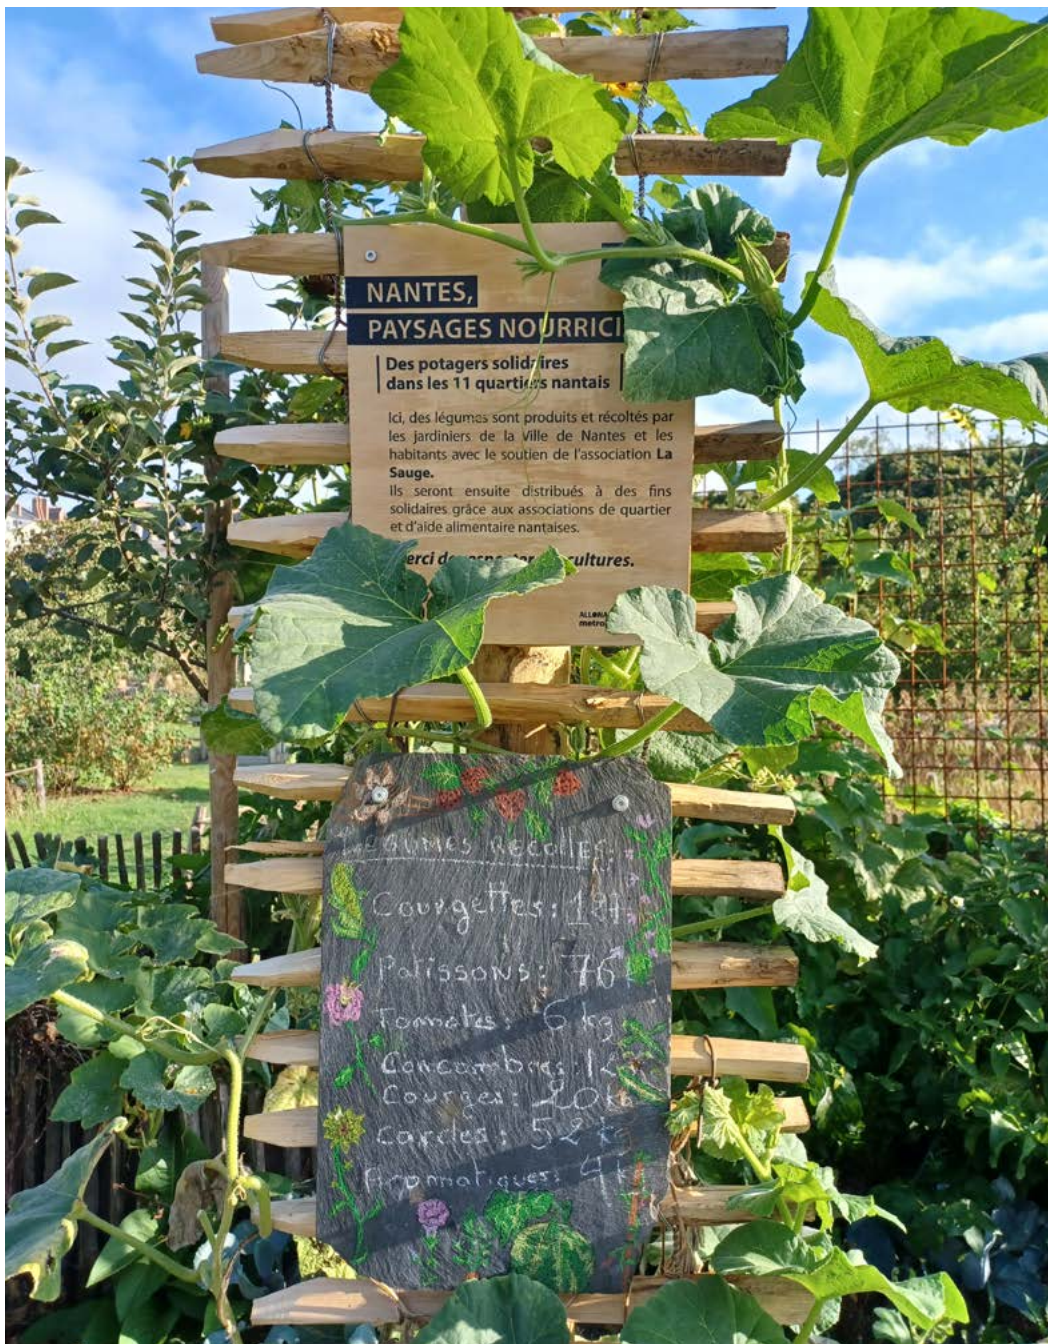 NANTES,
PAYSAGES NOURRICI
Des potagers solidaires
dans les 11 quartiers nantais
Ici, des légumes sont produits et récoltés par
les jardiniers de la Ville de Nantes et les
habitants avec le soutien de l'association La
Sauge.
Ils seront ensuite distribués à des fins
solidaires grâce aux associations de quartier
et d'aide alimentaire nantaises.
cultures.
LÉGUMES RÉCOLTÉS:
Courgettes:
Patissons: 76
Tomates: 6 kg
Concombres: 12
Courges: 20 k
Cardes: 52 kg
Aromatiques: 4 k